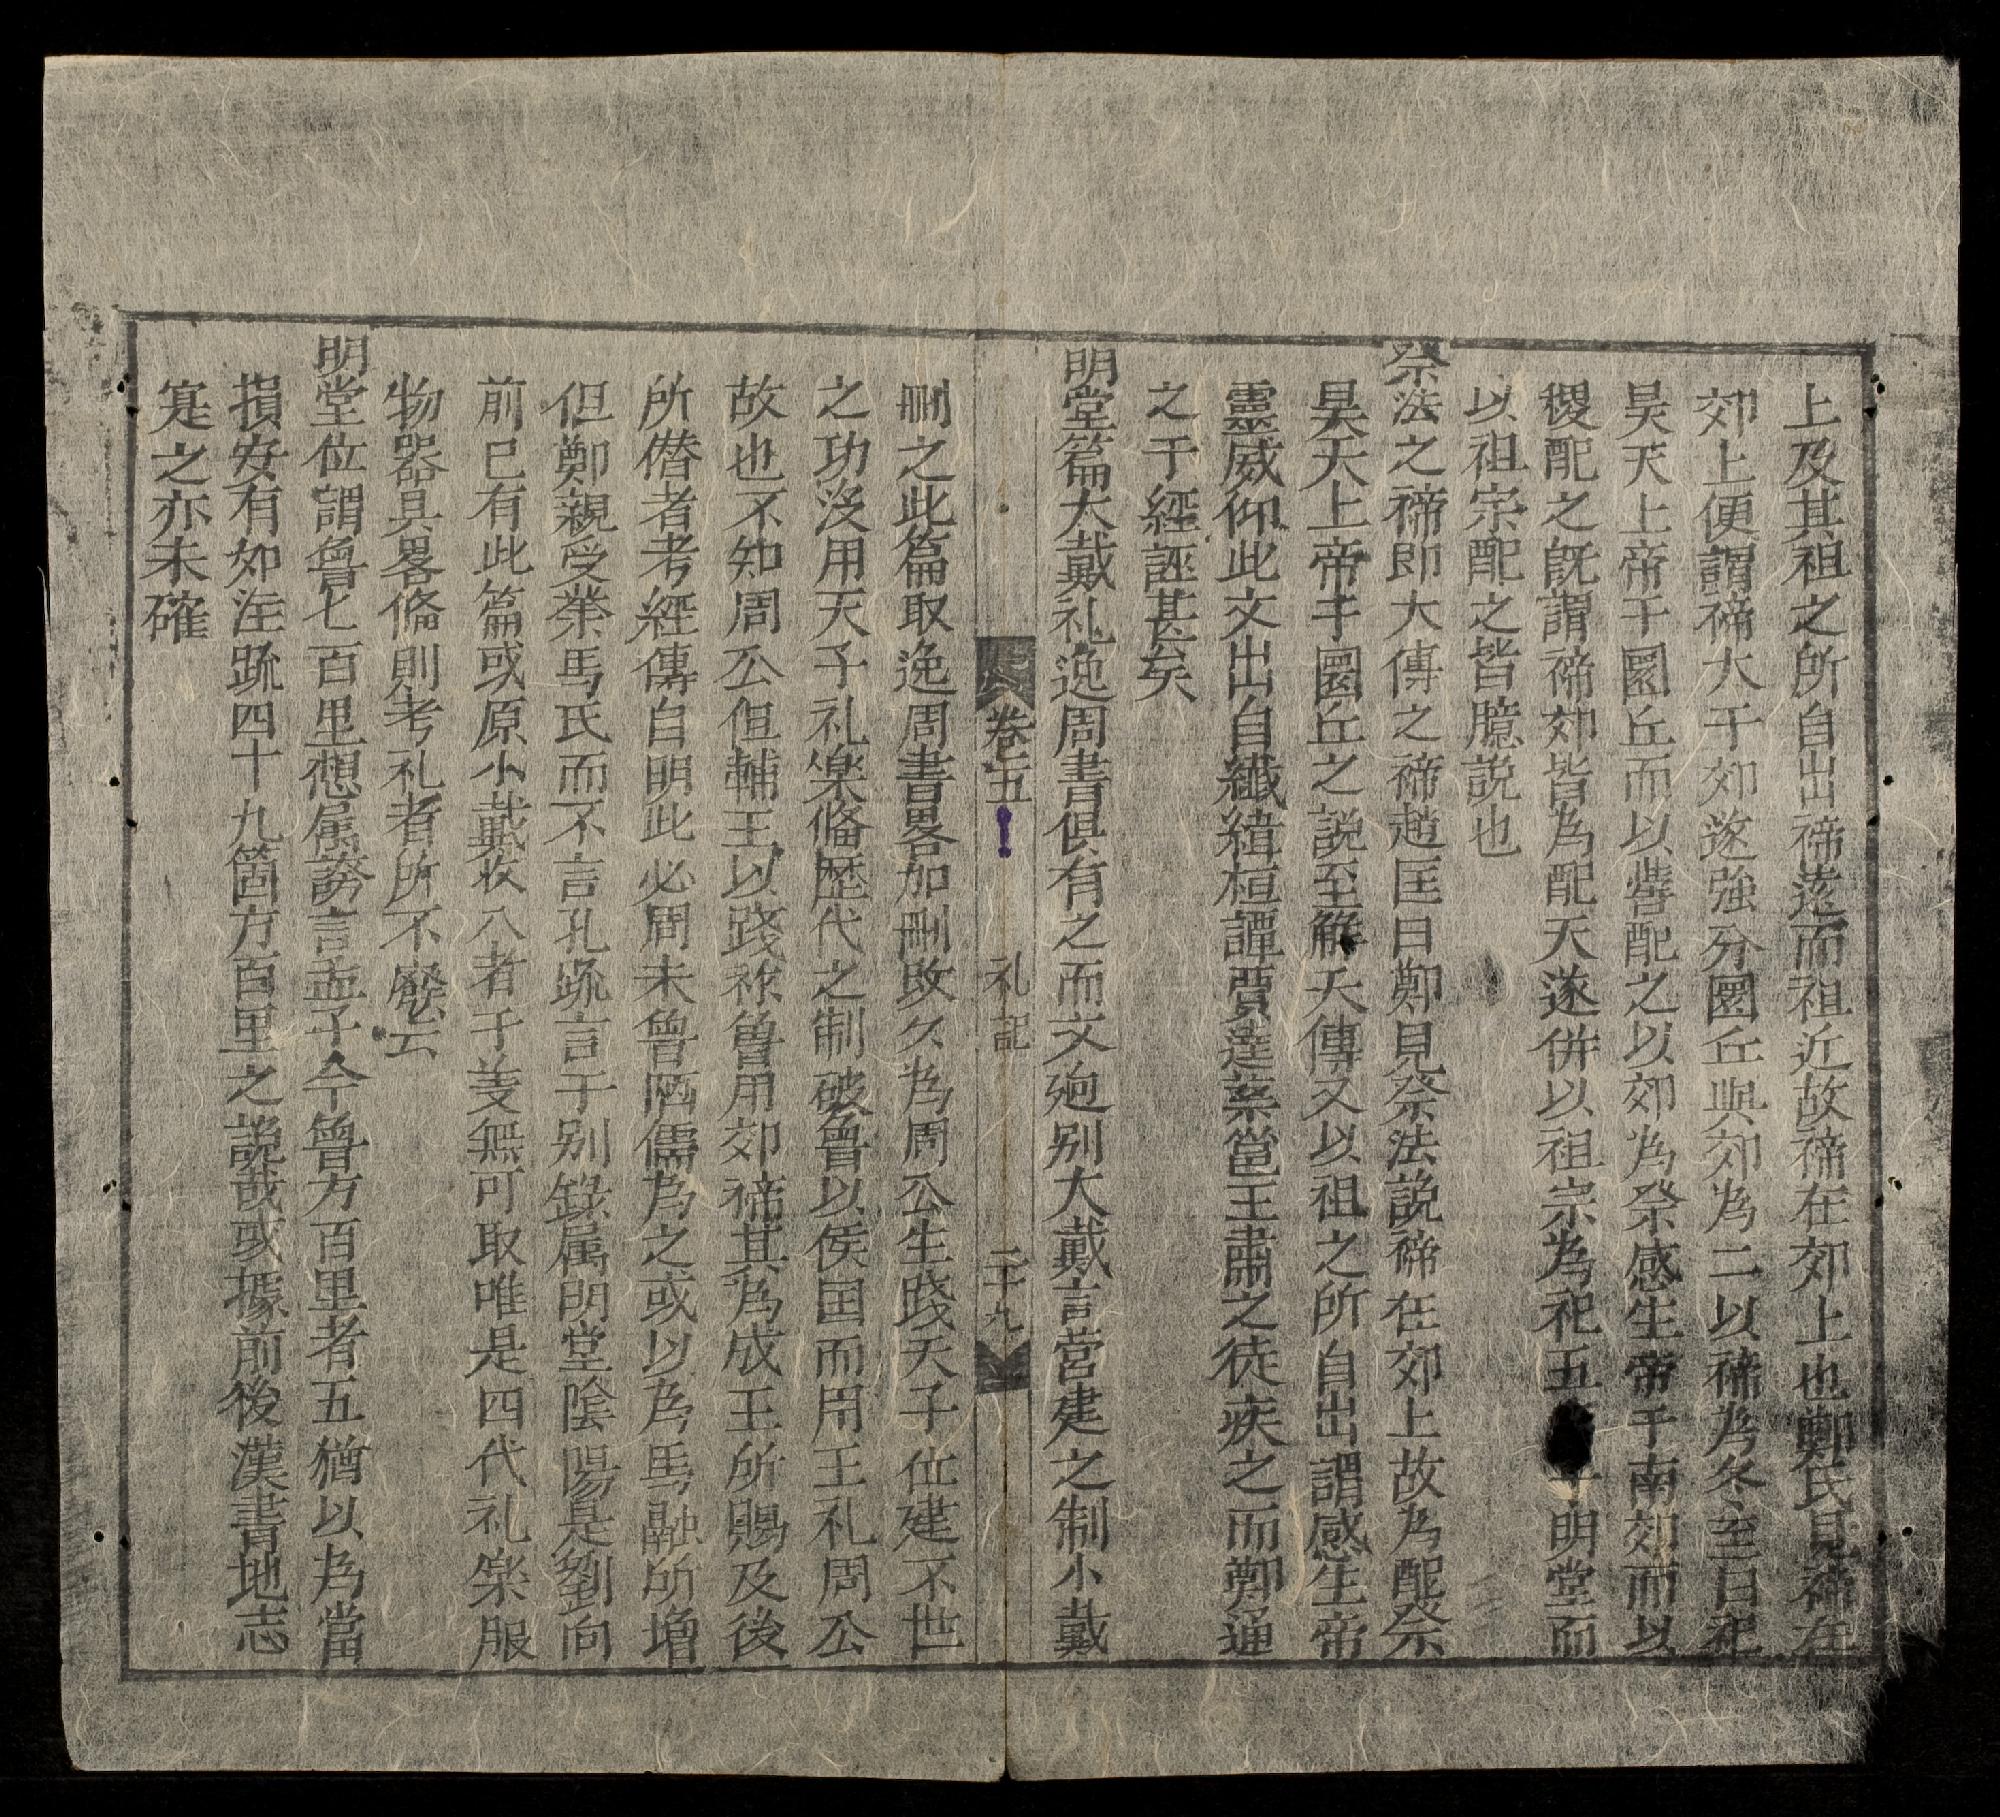 上及其祖之所自出禘遠而祖近故禘在郊上也鄭氏見禘在
郊上便謂禘大于郊遂強分圜丘與郊為二以禘為冬至日祀
昊天上帝于圜丘而以嚳配之以郊為祭感生帝于南郊而以
稷配之旣謂禘郊皆為配天遂併以祖宗為祀五 于明堂而
以祖宗配之皆臆説也
祭法之禘即大傳之禘趙匡曰鄭見祭法説禘在郊上故為配祭
昊天上帝于圜丘之説至觧大傳又以祖之所自出謂感生帝
靈威仰此文出自纖緯桓譚賈逵蔡邕王肅之徒疾之而鄭通
之于經誣甚矣
明堂篇大戴礼逸周書俱有之而文逈别大戴言营建之制小戴
卷五 礼記 二十九
刪之此篇取逸周書畧加刪改欠為周公生踐天子位建不世
之功沒用天子礼楽俻歷代之制破魯以侯国而用王礼周公
故也不知周公但輔王以踐祚魯用郊禘其爲成王所賜及後
所僣者考經傳自明此必周末魯陋儒為之或以為馬融所增
但鄭親受業馬氏而不言孔疏言于别錄属明堂陰陽是劉向
前已有此篇或原小戴收入者于義無可取唯是四代礼楽服
物器具畧俻則考礼者所不廢云
明堂位謂魯七百里想属誇言孟子今魯方百里者五猶以為當
損安有如注疏四十九箇方百里之説哉或據前後漢書地志
寔之亦未確